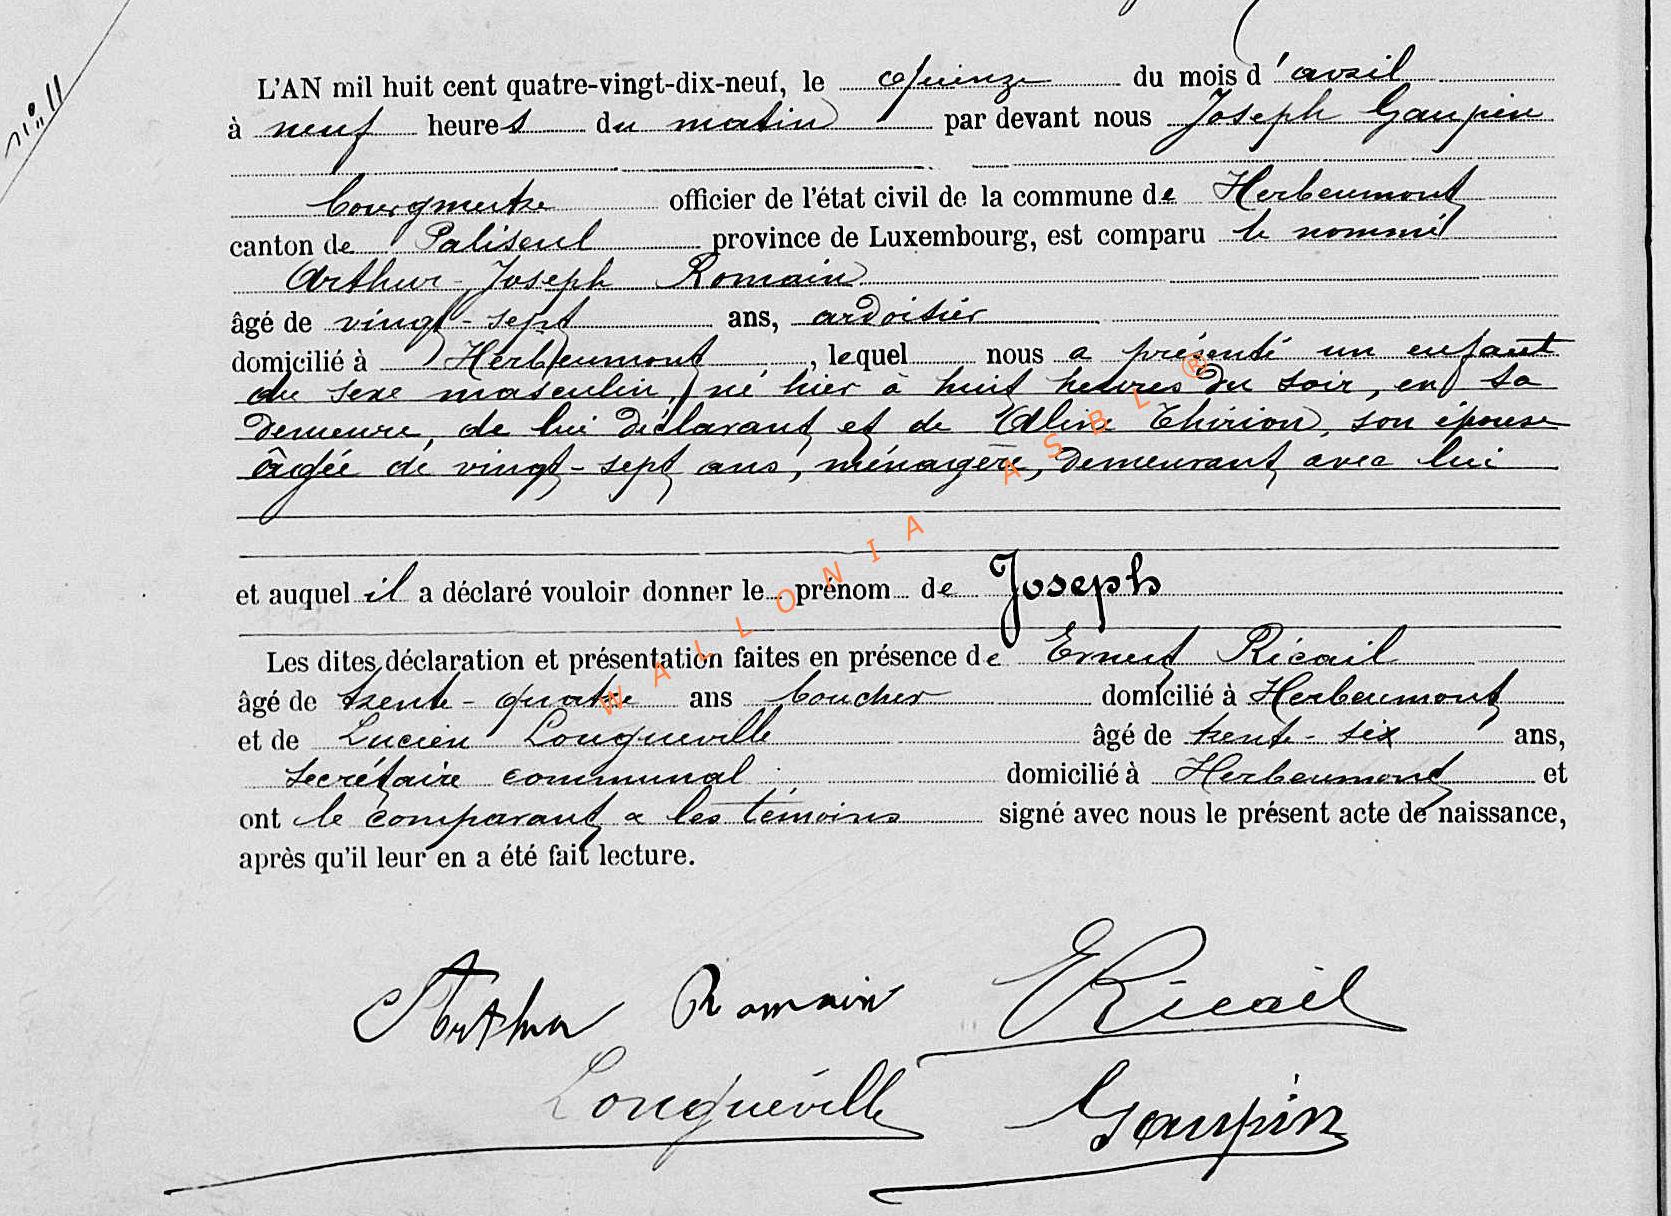 n° 11
L'AN mil huit cent quatre-vingt-dix-neuf, le quinze du mois d'avril
à neuf heures du matin par devant nous Joseph Gaupin
bourgmestre officier de l'état civil de la commune de Herbeumont
canton de Paliseul province de Luxembourg, est comparu le nommé
Arthur-Joseph Romain
âgé de vingt-sept ans, ardoisier
domicilié à Herbeumont, lequel nous a présenté un enfant
du sexe masculin, né hier à huit heures du soir, en sa
demeure, de lui déclarant et de Aline Thirion, son épouse
âgée de vingt-sept ans, ménagère, demeurant avec lui
et auquel il a déclaré vouloir donner le prénom de Joseph
Les dites déclaration et présentation faites en présence de Ernest Ricail
âgé de trente-quatre ans boucher domicilié à Herbeumont
et de Lucien Longueville âgé de trente-six ans,
secrétaire communal domicilié à Herbeumont et
ont le comparant & les témoins signé avec nous le présent acte de naissance,
après qu'il leur en a été fait lecture.
Arthur Romain ERicail
Longueville Gaupin
WALLONIA ASBL ®